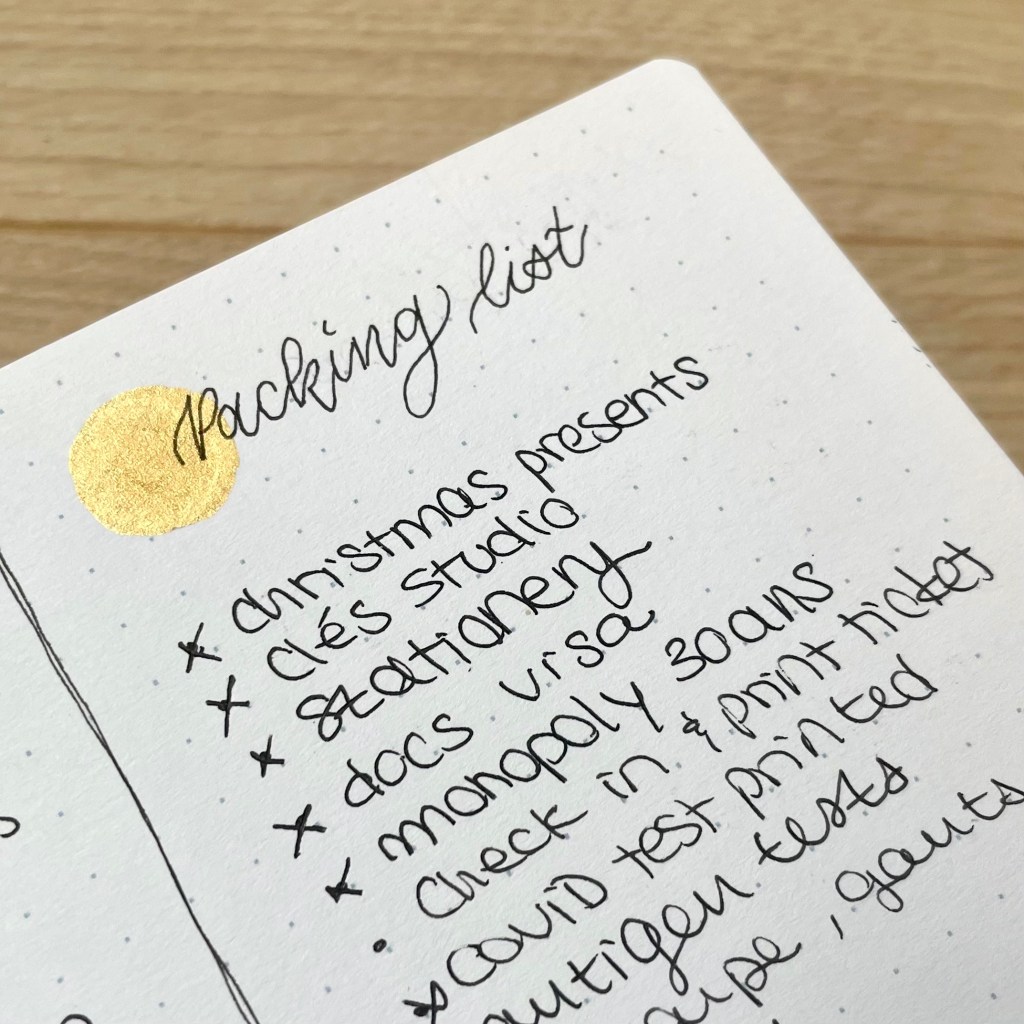 Packing list
x christmas presents
x clés studio
x stationery
x docs visa
x monopoly 30ans
• check in & print ticket
x covid test printed
antigen tests
, gants